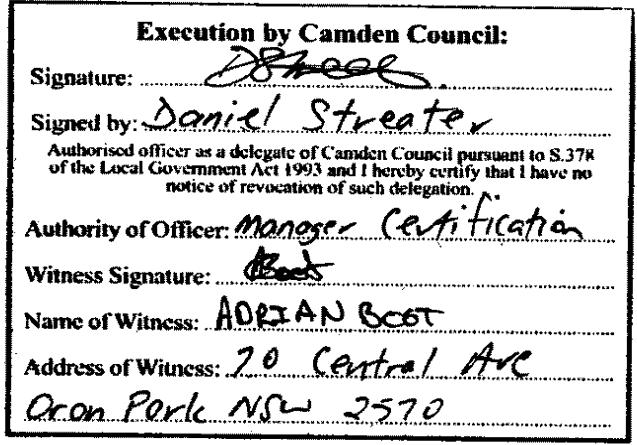 Execution by Camden Council:
Signature:
Signed by: Daniel Streater
Authorised officer as a delegate of Camden Council pursuant to S.378
of the Local Government Act 1993 and I hereby certify that I have no
notice of revocation of such delegation.
Authority of Officer: Manager Certification
Witness Signature:
Name of Witness: ADRIAN BOOT
Address of Witness: 70 Central Ave
Oran Park NSW 2570